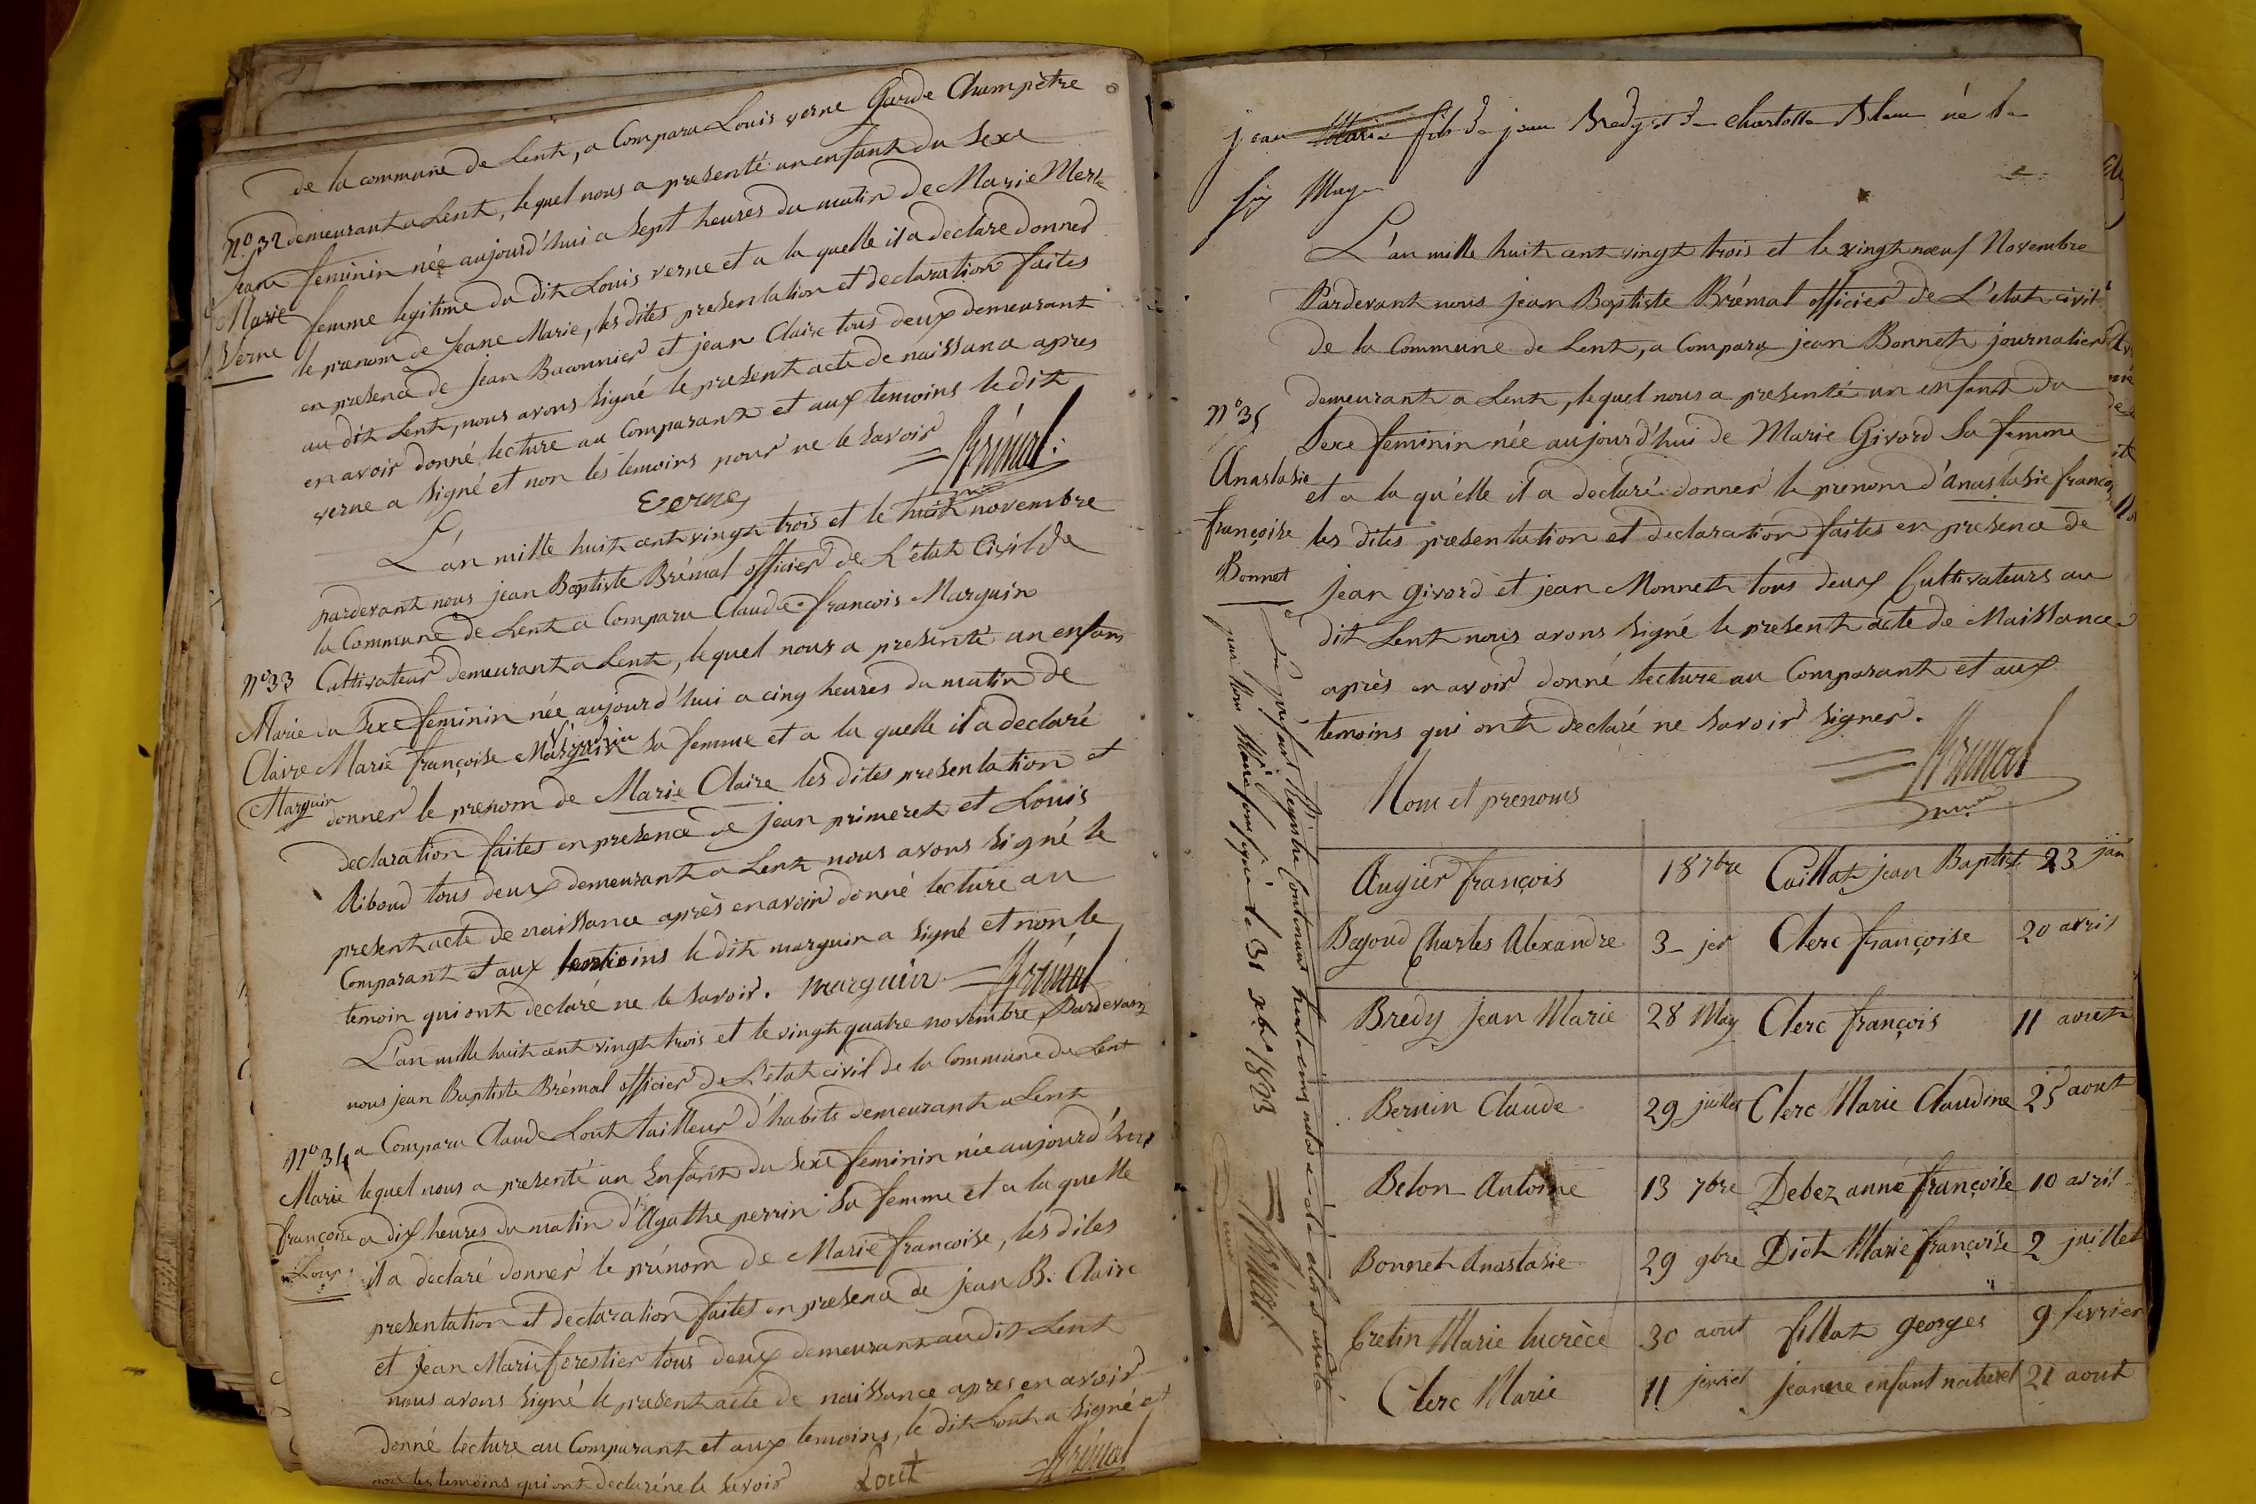 de la commune de Lent, a Comparu Louis verne Garde Champêtre
N.º 32 demeurant a Lent, lequel nous a presenté un enfant du Sexe
Jeane feminin née aujourd'hui a Sept heures du matin de Marie Merle
Marie femme legitime du dit Louis verne et a la quelle il a declare donner
Verne le prenom de Jeane Marie, les dites presentation et declaration faites
en presence de Jean Buconnier et jean Claire tous deux demeurant
au dit Lent, nous avons signé le present acte de naissance apres
en avoir donné lecture au Comparant et aux temoins le dit
verne a signé et non les temoins pour ne le savoir Brémal
verne
L'an mille huit cent vingt trois et le huit novembre
pardevant nous jean Baptiste Brémal officier de L'état Civil de
la Commune de Lent a Comparu Claude francois Marguin
N.º 33 Cultivateur demeurant a Lent, lequel nous a presenté un enfant
Marie du Sexe feminin née aujourd'hui a cinq heures du matin de
Claire Marie françoise sa femme et a la quelle il a declaré
Marguin donner le prenom de Marie Claire les dites presentation et
declaration faites en presence de jean primeret et Louis
Riboud tous deux demeurant a Lent nous avons signé le
present acte de naissance après en avoir donné lecture au
Comparant et aux temoins le dit marguin a signé et non le
temoin qui ont declaré ne le savoir. marguin Brémal
L'an mille huit cent vingt trois et le vingt quatre novembre Pardevant
nous jean Baptiste Brémal officier de L'etat civil de la Commune de Lent
N.º 34 a Comparu Claude Lout tailleur d'habits demeurant a Lent
Marie lequel nous a presenté un Enfant du Sexe feminin née aujourd'hui
françoise a dix heures du matin d'Agathe perrin sa femme et a la quelle
il a declaré donner le prénom de Marie francoise, les dites
presentation et declaration faites en presence de jean B. Claire
et jean Marie forestier tous deux demeurant audit Lent
nous avons signé le present acte de naissance apres en avoir
donné lecture au Comparant et aux temoins, le dit Lout a signé et
non les temoins qui ont declaré ne le savoir Lout Brémal
jean Marie fils de jean Bredy et de charlotte né le
May
L'an mille huit cent vingt trois et le vingt nœuf Novembre
Pardevant nous jean Baptiste Brémal officier de L'etat civil
de la Commune de Lent, a Comparu jean Bonnet journalier
demeurant a Lent, lequel nous a presenté un enfant du
N.º 35 Sexe feminin née aujourd'hui de Marie Givord Sa femme
Anastasie et a la qu'elle il a declaré donner le prenom d'anastasie françoise
françoise les dites presentation et declaration faites en presence de
Bonnet jean givord et jean Monnet tous deux Cultivateurs au
dit Lent nous avons signé le present acte de Naissance
après en avoir donné lecture au Comparant et aux
temoins qui ont declaré ne savoir signer.
Brémal
Le présent Registre Contenant trente cinq actes a été clos et arreté
par Nous Maire soussigné le 31 xbre 1823
Brémal
Nom et prenoms
Augier françois 18 7bre Caillat jean Baptist 23 jan
Begoud Charles Alexandre 3 jer Clerc françoise 20 avril
Bredy Jean Marie 28 May Clerc françois 11 aout
Bernin Claude 29 juillet Clerc Marie Claudine 25 aout
Belon Antoine 13 7bre Debez anne françoise 10 avril
Bonnet Anastasie 29 9bre Diot Marie françoise 2 juillet
Cretin Marie lucrèce 30 aout fillat georges 9 fevrier
Clerc Marie 11 janvier jeanne enfant naturel 21 aout